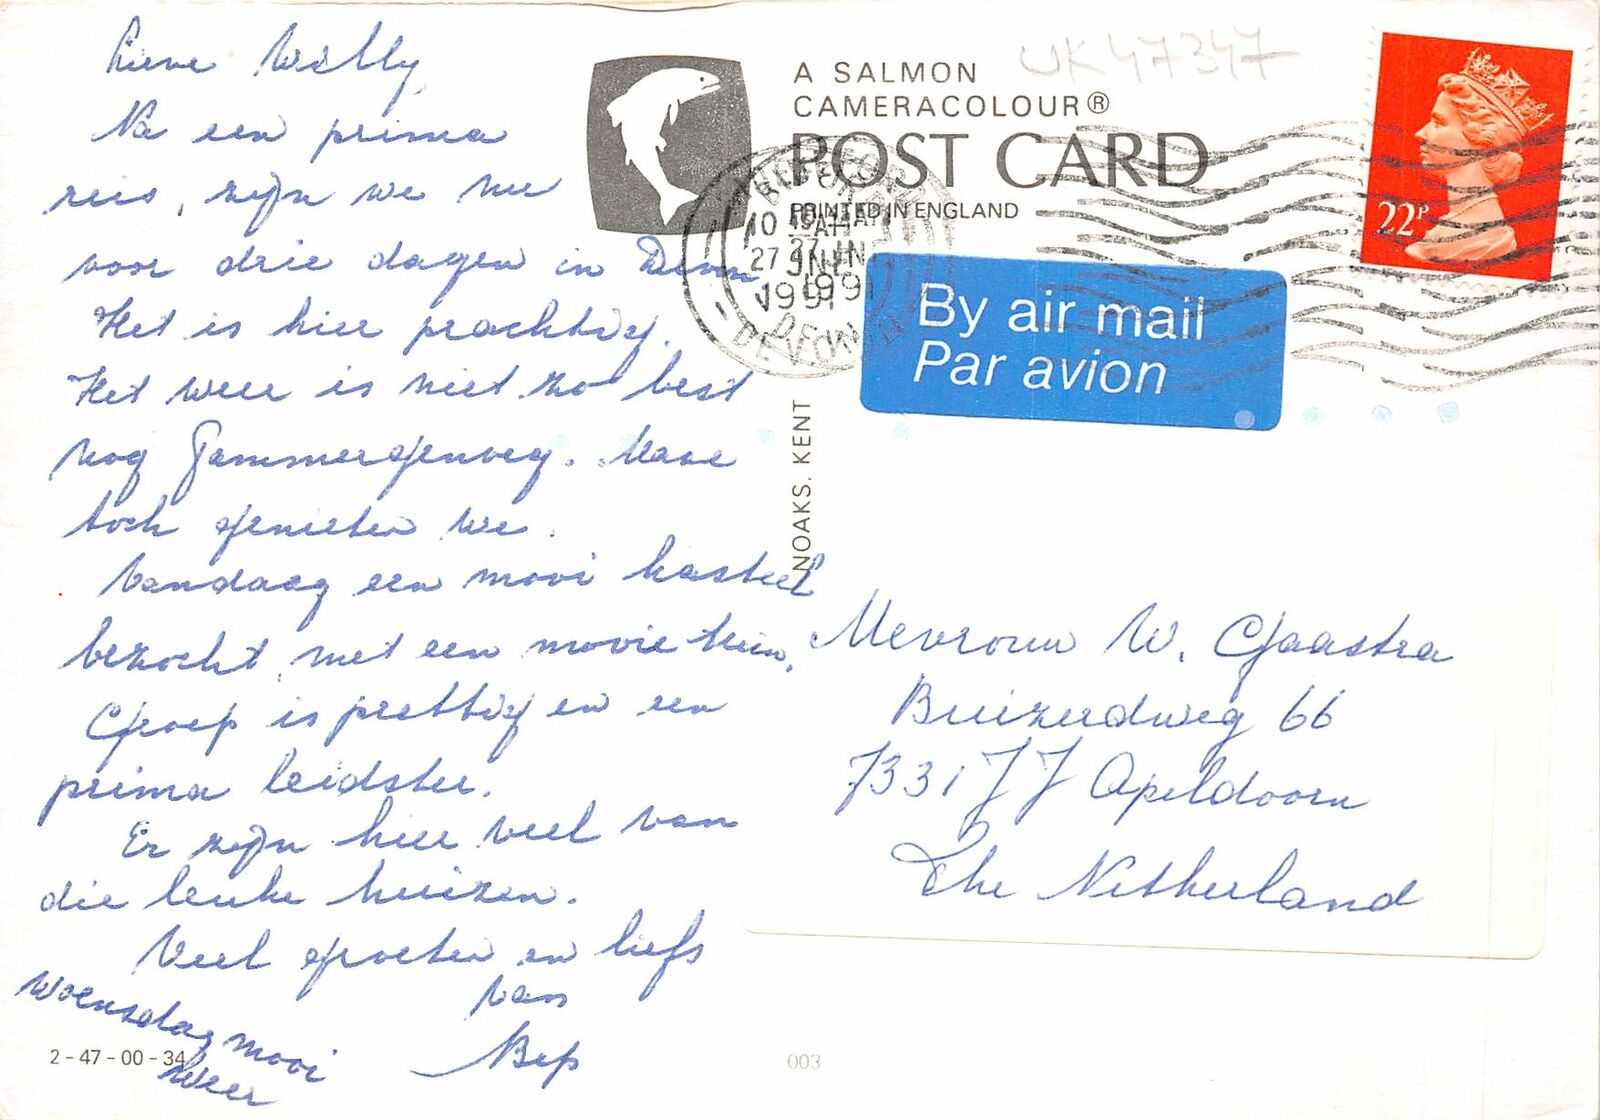 Lieve Willy
Na een prima
reis, zijn we nu
voor drie dagen in Devon
Het is hier prachtig.
Het weer is niet zo best
nog Jammergenoeg. Maar
toch genieten we.
Vandaag een mooi kasteel
bezocht, met een mooie tuin.
Groep is prettig en een
prima leidster.
Er zijn hier veel van
die leuke huizen.
Veel groeten en liefs
van
Bep
Woensdag mooi
weer
2-47-00-34
A SALMON
CAMERACOLOUR®
POST CARD
PRINTED IN ENGLAND
UK47347
10 15 AM
27 JNE
1991
DEVON
22P
By air mail
Par avion
NOAKS. KENT
Mevrouw W. Gjaastra
Buizerdweg 66
7331 JJ Apeldoorn
The Netherland
003